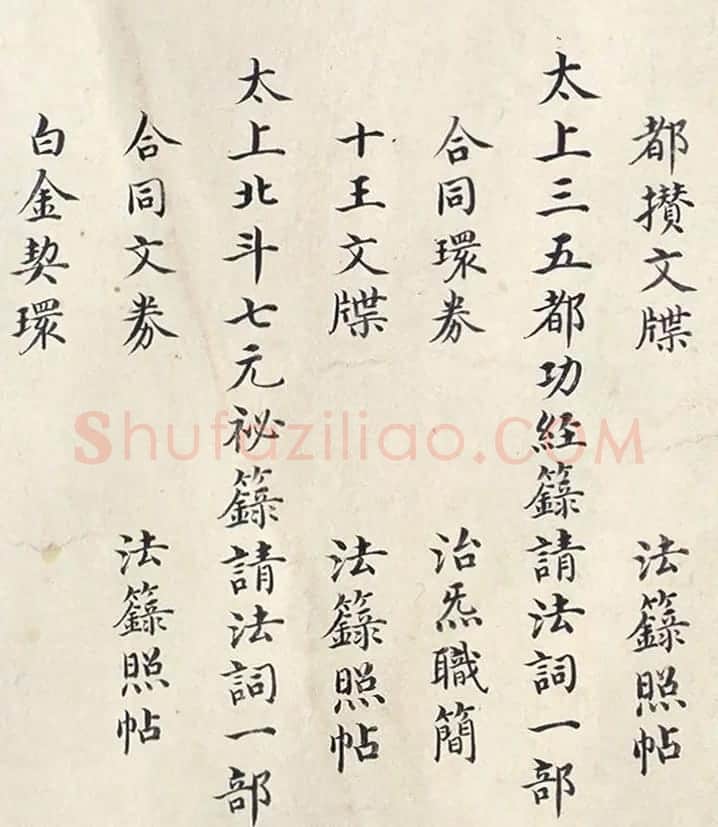 都攢文牒 法籙照帖
太上三五都功經籙請法詞一部
合同環券 治炁職簡
十王文牒 法籙照帖
太上北斗七元祕籙請法詞一部
合同文券 法籙照帖
白金契環
Shufaziliao.COM